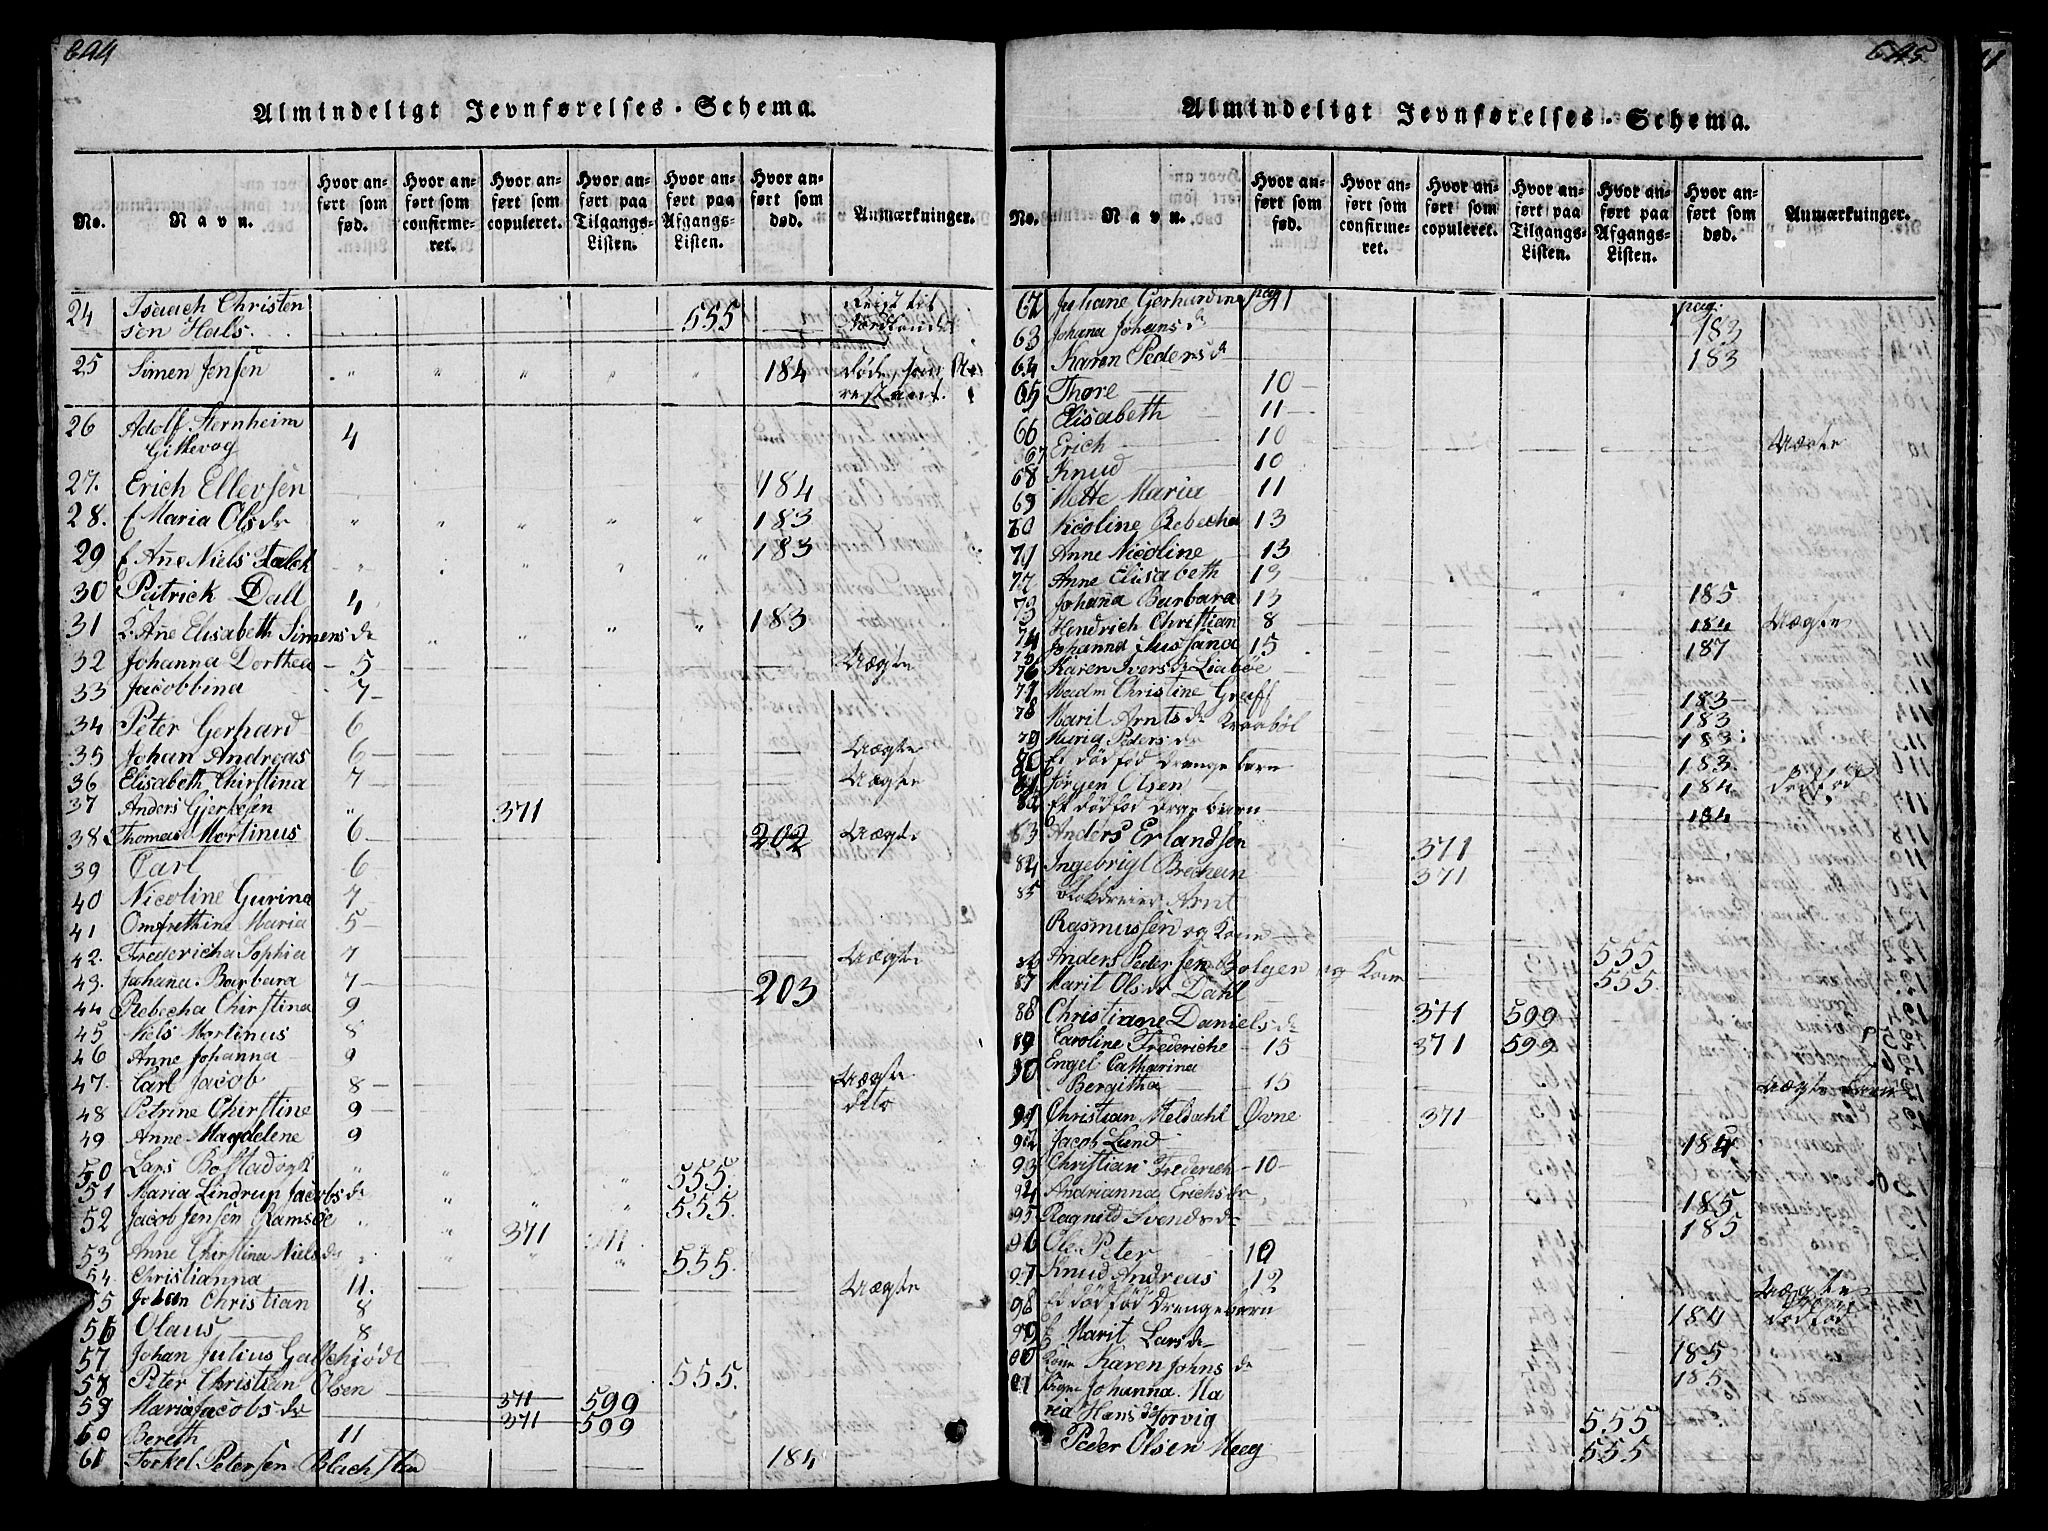 644
Almindeligt Jevnførelses-Schema.
No.
Navn.
Hvor anført som fød.
Hvor anført som confirmeret.
Hvor anført som copuleret.
Hvor anført paa Tilgangs-Listen.
Hvor anført paa Afgangs-Listen.
Hvor anført som død.
Anmærkninger.
24 Isaach Christen 555 Reist til
sen Hals.
25 Simen Jensen 184
26 Adolf Sternheim 4
27. Erich Ellevsen 184
28. Maria Olsdr 183
29 Ane Niels 183
30 Peitrick Dall 4
31 Ane Elisabeth Simensdr 183
32 Johanna Dorthea 5 Uægte
33 Jacobbina 7
34 Peter Gerhard 6
35 Johan Andreas 6 Uægte
36 Elisabeth Chirstina 7 Uægte
37 Anders Gerksen 371
38 Thomas Mortinus 6 202 Uægte
39 Carl 6
40 Nicoline Gurina 7
41 Maria 5
42. Fredericha Sophia 7 Uægte
43. Johana Barbara 7 203
44 Rebecha Chirstina 9
45 Niels Mortinus 8
46 Anne Johanna 9
47. Carl Jacob 8 Uægte
48 Petrine Chirstine 9 dito
49 Anne Magdelene 9
50 Lars 555.
51 Maria Lindrup Jacobsdr 555.
52 Jacob Jensen Ramsøe 371
53 Anne Chirstina Nielsdr 555.
54. Christianna 11. Uægte
55 Johan Christian 8
56 Olaus 8
57 Johan Julius 555.
58 Peter Christian Olsen 371 599
59 Maria Jacobsdr 371 599
60 Bereth 11
61 Torkel Petersen 184
645
Almindeligt Jevnførelses-Schema.
No.
Navn.
Hvor anført som fød.
Hvor anført som confirmeret.
Hvor anført som copuleret.
Hvor anført paa Tilgangs-Listen.
Hvor anført paa Afgangs-Listen.
Hvor anført som død.
Anmærkninger.
62 Juliane Gerhardine pag 11 pag:
63 Johana Johansdr 183
64 Karen Pedersdr 183
65 Thore 10
66 Elisabeth 11
67 Erich 10 Uægte
68 Knud 10
69 Mette Maria 11
70 Nicoline Rebecha 13
71 Anne Nicoline 13
72 Anne Elisabeth 13
73 Johana Barbara 13 185
74 Hendrich Christian 8 184 Uægte
75 Johanna Sussana 15 187
76 Karen Iversdr Liabøe
77 Madm Christine Greiff 183
78 Marit Arntsdr 183
79 Maria Pedersdr 183
80 Et dødfød drengebarn 183
81 Jørgen Olsen 184
82 Et dødfød barn 184
83 Anders Erlandsen 371
84 Ingebrigt 371
85 Arnt
Rasmussen og Kone
86 Anders Pedersen Bolgen og Kone 555
87 Marit Olsdr Dahl 555
88 Christiane Danielsdr 371 599
89 Caroline Frederiche 15 371 599
90 Engel Catharina
Bergitha 15 Uægte Barn
91 Christian Meldahl Øvne 371
92 Jacob Lund 184
93 Christian Frederich 10
94 Andrianna Erichsdr 185
95 Ragnild Svendsdr 185
96 Ole Peter 10
97 Knud Andreas 12 Uægte
98 Et dødfød Drengebarn 184 dødfød
99 Marit Larsdr 185
Karen Johnsdr 185
Johanna Ma
ria Hansdr 555
Peder Olsen 555